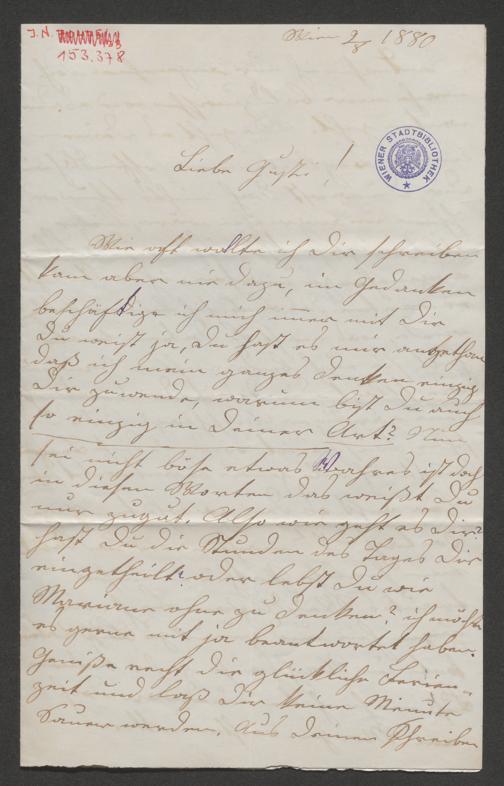 J. N.
153.378
Wien 2/8 1880
WIENER STADTBIBLIOTHEK
Liebe Gusti!
Wie oft wollte ich Dir schreiben
kam aber nie dazu, im Gedanken
beschäftige ich mich immer mit Dir
Du weist ja, Du hast es mir angethan
daß ich mein ganzes Denken einzig
Dir zuwende, warum bist Du auch
so einzig in Deiner Art? Nun
sei nicht böse etwas Wahres ist doch
in diesen Worten das weißt Du
nur zugut. Also wie geht es Dir?
hast Du die Stunden des Tages Dir
eingetheilt? oder lebst Du wie
Mariane ohne zu denken? ich möchte
es gerne mit ja beantwortet haben.
Genieße recht die glückliche Ferien-
zeit und laß Dir keine Minute
Sauer werden. Aus Deinem Schreiben